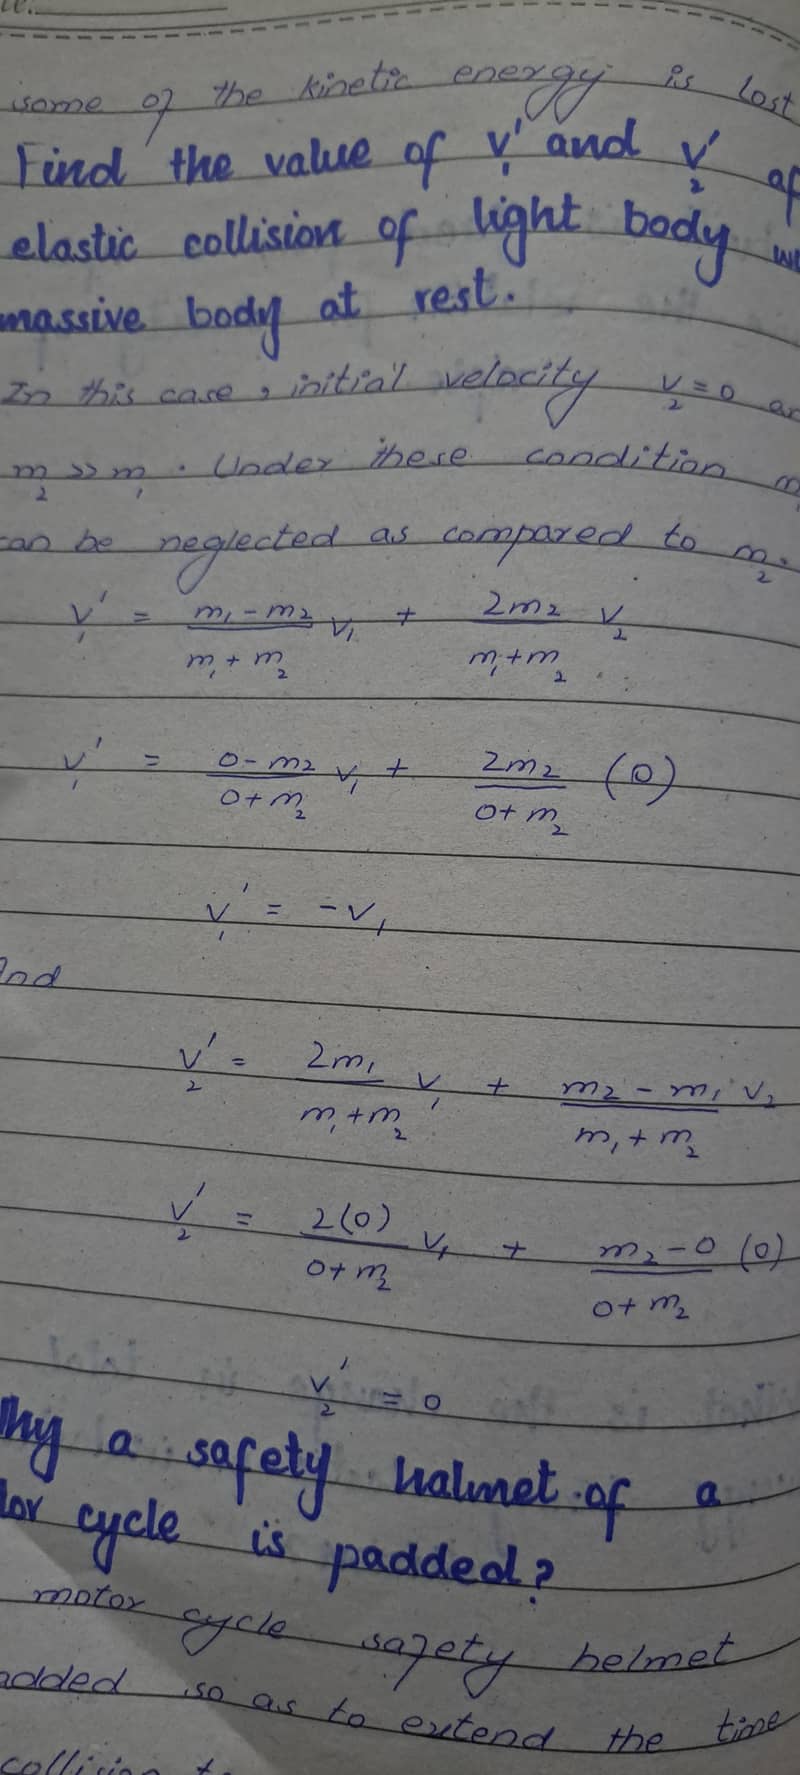 some of the kinetic energy is lost
Find the value of v₁' and v₂' af
elastic collision of light body wi
massive body at rest.
In this case, initial velocity v₂=0 an
m₂ >> m₁. Under these condition m
can be neglected as compared to m₂.
v₁' = m₁-m₂/m₁+m₂ v₁ + 2m₂/m₁+m₂ v₂
v₁' = 0-m₂/0+m₂ v₁ + 2m₂/0+m₂ (0)
v₁' = -v₁
And
v₂' = 2m₁/m₁+m₂ v₁ + m₂-m₁/m₁+m₂ v₂
v₂' = 2(0)/0+m₂ v₁ + m₂-0/0+m₂ (0)
v₂' = 0
hy a safety halmet of a
tor cycle is padded?
motor cycle safety helmet
added so as to extend the time
collision